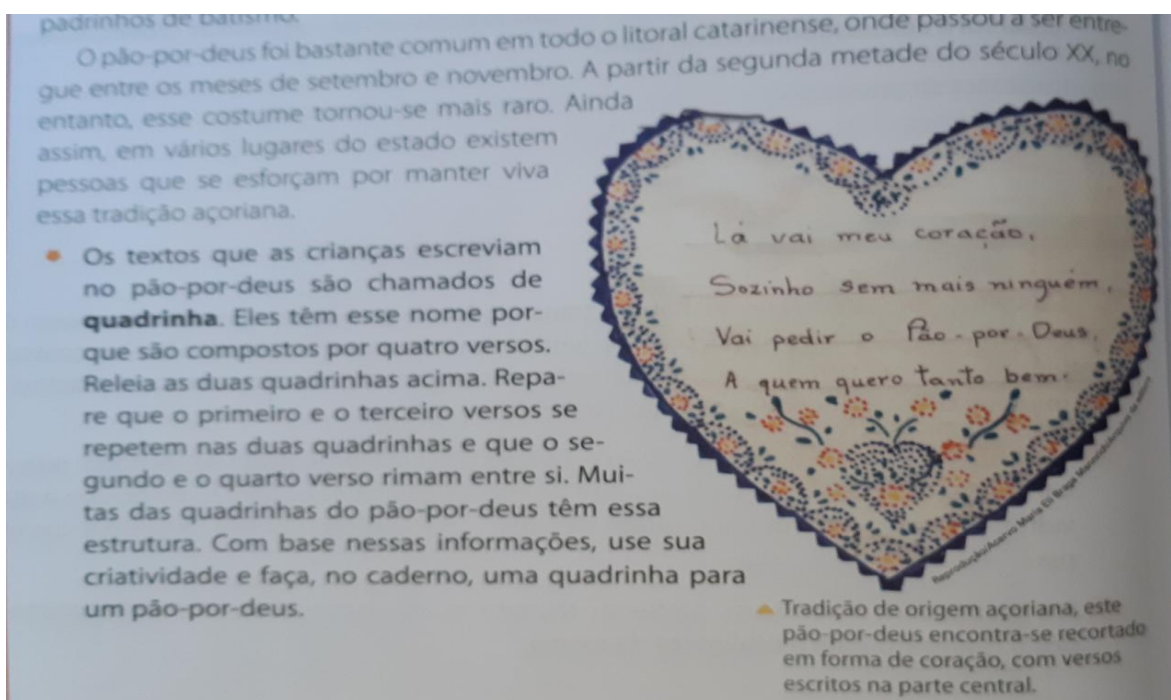 padrinhos de batismo.
O pão-por-deus foi bastante comum em todo o litoral catarinense, onde passou a ser entre-
gue entre os meses de setembro e novembro. A partir da segunda metade do século XX, no
entanto, esse costume tornou-se mais raro. Ainda
assim, em vários lugares do estado existem
pessoas que se esforçam por manter viva
essa tradição açoriana.
• Os textos que as crianças escreviam
no pão-por-deus são chamados de
quadrinha. Eles têm esse nome por-
que são compostos por quatro versos.
Releia as duas quadrinhas acima. Repa-
re que o primeiro e o terceiro versos se
repetem nas duas quadrinhas e que o se-
gundo e o quarto verso rimam entre si. Mui-
tas das quadrinhas do pão-por-deus têm essa
estrutura. Com base nessas informações, use sua
criatividade e faça, no caderno, uma quadrinha para
um pão-por-deus.
Lá vai meu coração,
Sozinho sem mais ninguém,
Vai pedir o Pão-por-Deus,
A quem quero tanto bem.
Reprodução/Acervo Maria Eli Braga
Tradição de origem açoriana, este
pão-por-deus encontra-se recortado
em forma de coração, com versos
escritos na parte central.